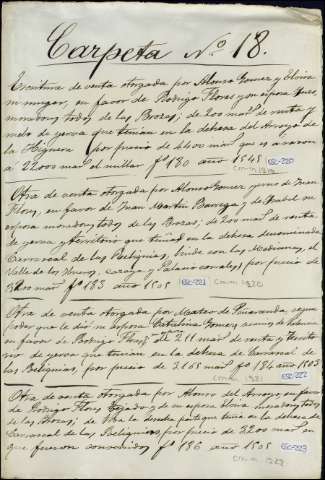 Carpeta Nº 18.
Escritura de venta otorgada por Alonso Gomez y Elvira
su muger, en favor de Rodrigo Flores y su esposa Ines,
moradores todos de las Brozas; de 200 marˢ de renta y
de yerva que tenian en la dehesa del Arroyo de
la Higuera por precio de 4400 marˢ que es a razon
a 22.000 marˢ el millar fº 180 año 1545
ESC-220
Otra de venta otorgada por Alonso Gomez yerno de Juan
Flores, en favor de Juan Martin Barriga y de Isabel su
esposa moradores todos, de las Brozas, de 200 marˢ de renta
de yerva y territorio que tenia en la dehesa denominada
Carrascal de las Peliguias, linda con
Valle de los por precio de
marˢ fº 183 año 1505
ESC-221
Otra de venta otorgada por Mateo de Peñaranda, segun
poder que le dió su esposa Catalina Gomez,
en favor de Rodrigo Flores de 211 marˢ de renta y territo
rio de yerva que tenian en la dehesa de Carrascal de
las Peliguias, por precio de 3165 marˢ fº 184 año 1503
ESC-222
Otra de venta otorgada por Alonso del Arroyo en favor
de Rodrigo Flores y de su esposa Elvira moradores todos
de las Brozas; de la parte que tenia de la dehesa de
Carrascal de las Peliguias por precio de 2200 marˢ en
que fueron convenidos fº 186 año 1505
ESC-223